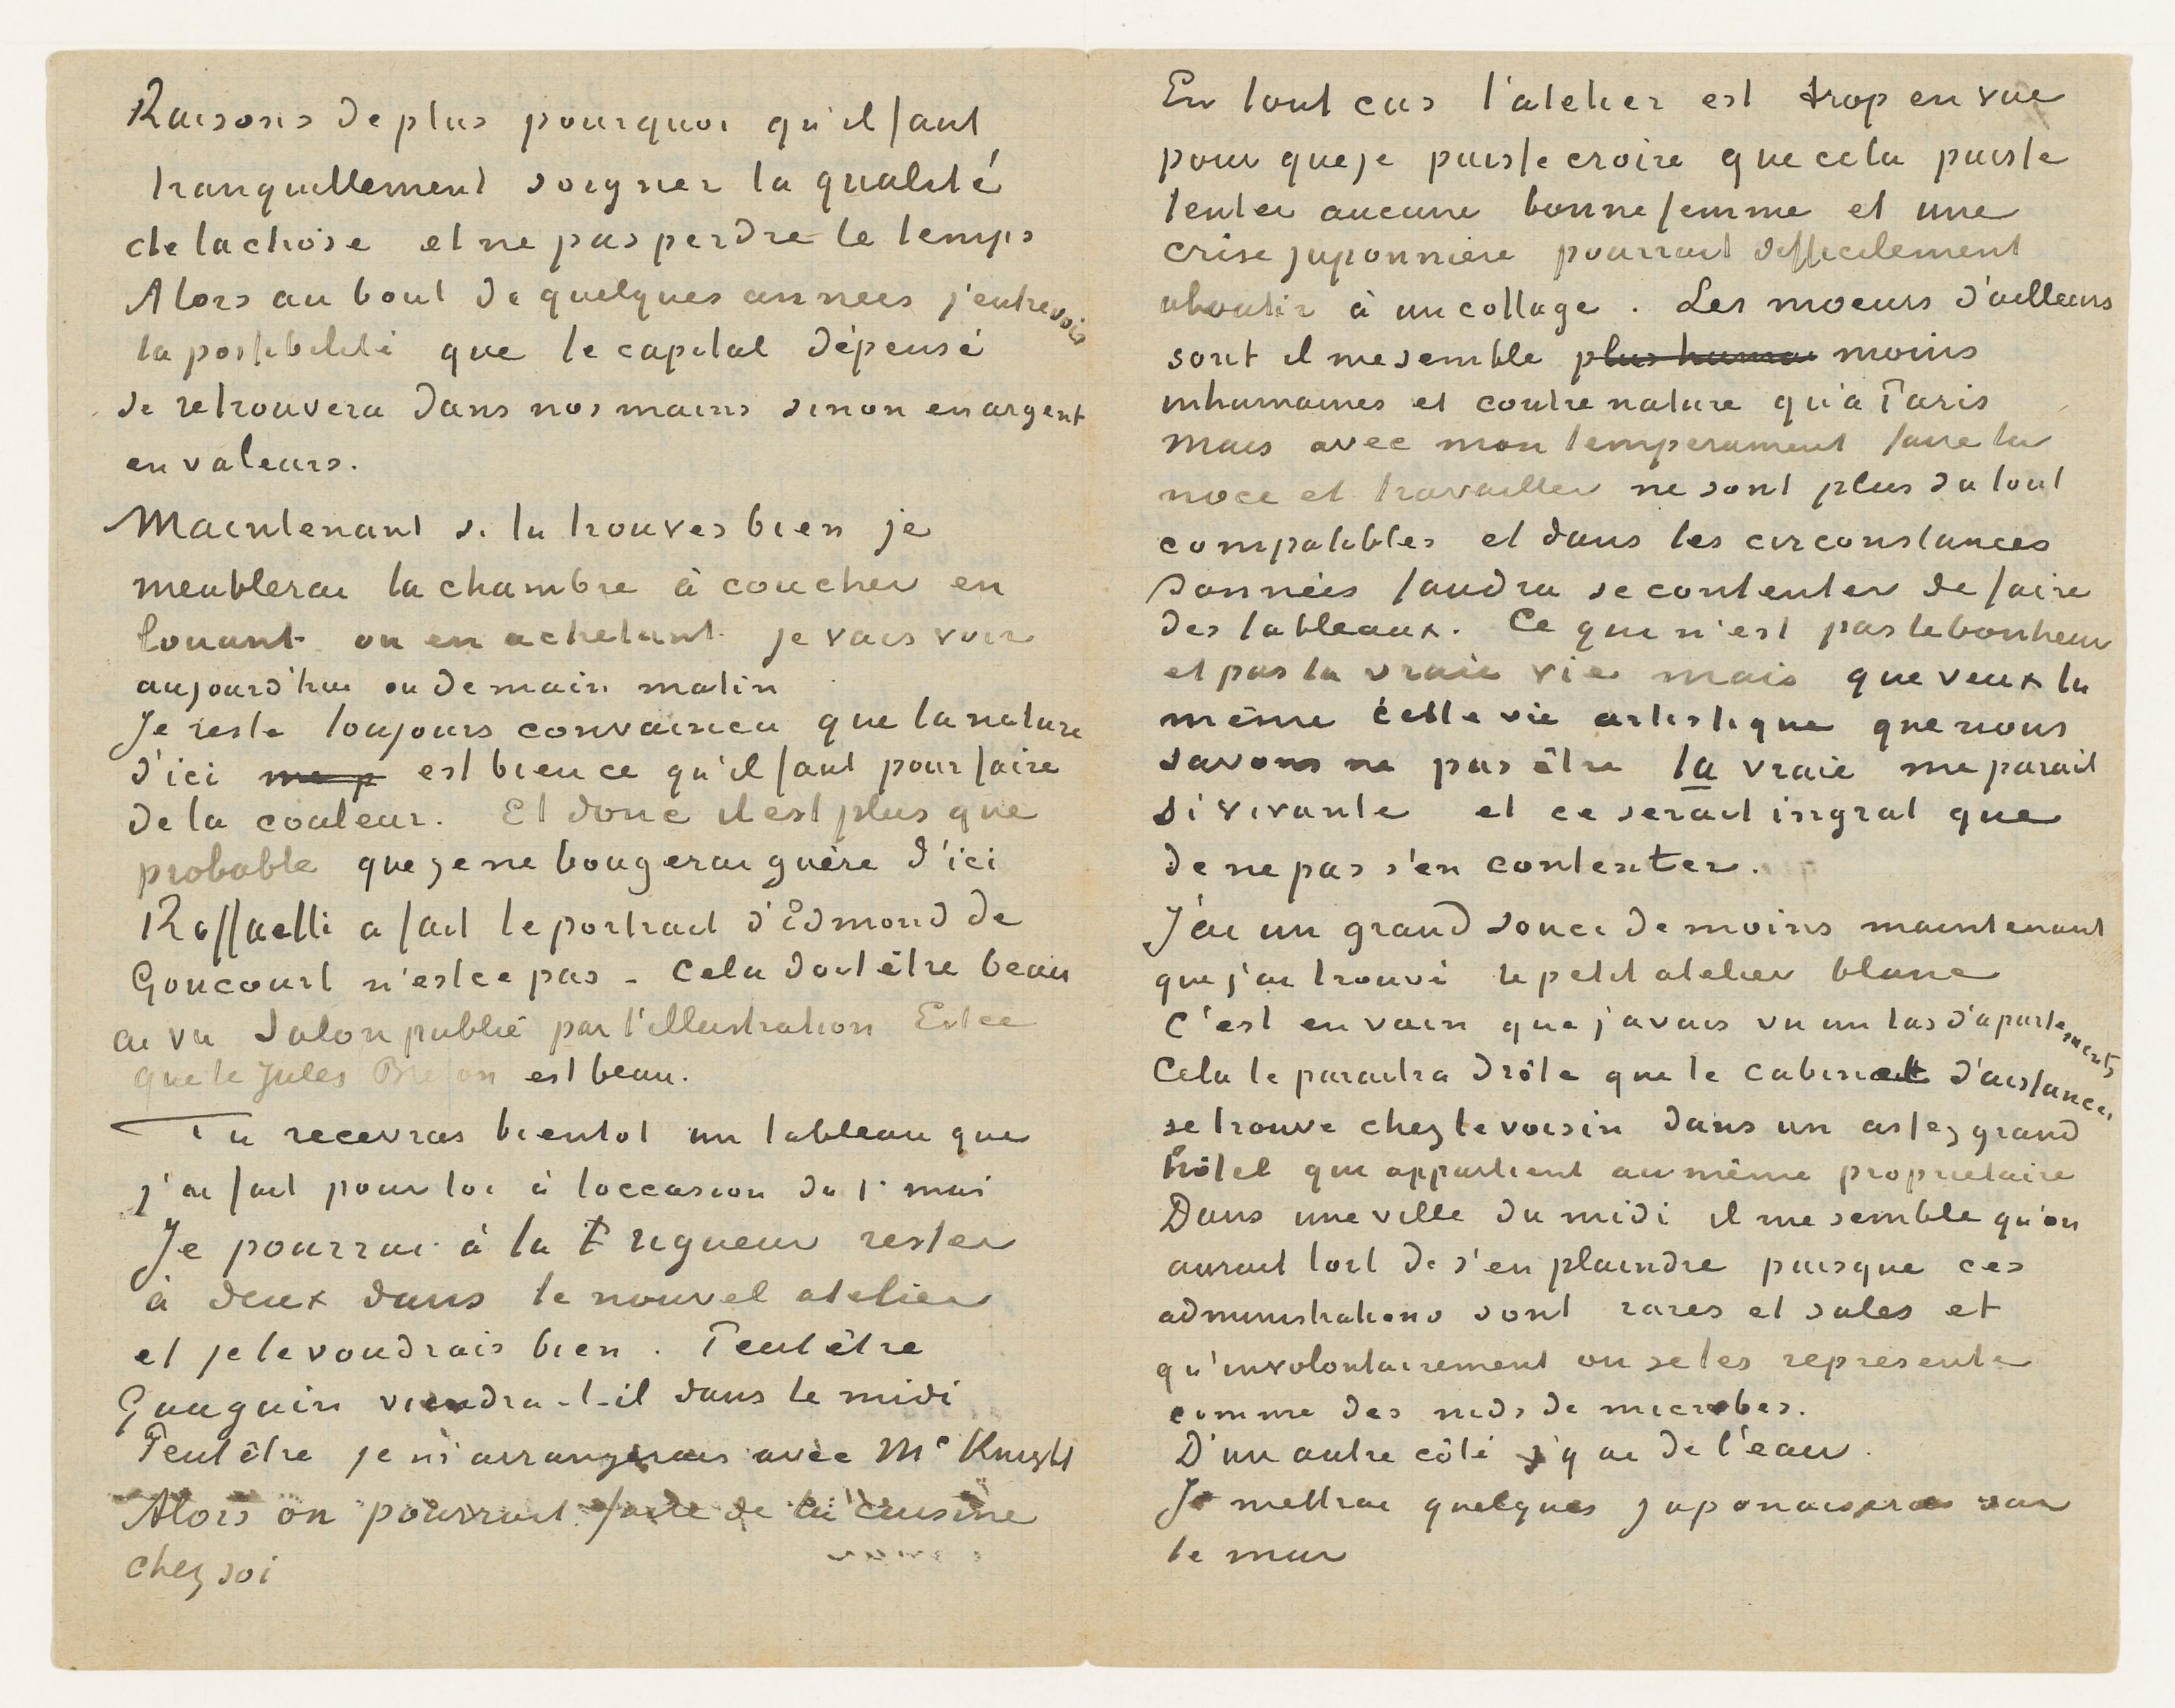 Raisons de plus pourquoi qu'il faut
tranquillement soigner la qualité
de la chose et ne pas perdre le temps
Alors au bout de quelques annees j'entrevois
la possibilité que le capital dépensé
se retrouvera dans nos mains sinon en argent
en valeurs.
Maintenant si tu trouves bien je
meublerai la chambre à coucher en
louant ou en achetant je vais voir
aujourd'hui ou demain matin
Je reste toujours convaincu que la nature
d'ici me p est bien ce qu'il faut pour faire
de la couleur. Et donc il est plus que
probable que je ne bougerai guère d'ici
Raffaelli a fait le portrait d'Edmond de
Goncourt n'est ce pas - Cela doit être beau
ai vu Salon publié par l'illustration Est ce
que le Jules Breton est beau.
Tu recevras bientot un tableau que
j'ai fait pour toi à l'occasion du 1r mai
Je pourrai à la t rigueur rester
à deux dans le nouvel atelier
et je le voudrais bien. Peut être
Gauguin viendra-t-il dans le midi
Peut être je m'arrangerais avec Mc Knight
Alors on pourrait faire de la cuisine
chez soi
En tout cas l'atelier est trop en vue
pour que je puisse croire que cela puisse
tenter aucune bonne femme et une
crise juponnière pourrait difficilement
aboutir à un collage. Les moeurs d'ailleurs
sont il me semble plus humai moins
inhumaines et contre nature qu'à Paris
Mais avec mon temperament faire la
noce et travailler ne sont plus du tout
compatibles et dans les circonstances
données faudra se contenter de faire
des tableaux. Ce qui n'est pas le bonheur
et pas la vraie vie mais que veux tu
même cette vie artistique que nous
savons ne pas être la vraie me parait
si vivante et ce serait ingrat que
de ne pas s'en contenter.
J'ai un grand souci de moins maintenant
que j'ai trouvé le petit atelier blanc
C'est en vain que j'avais vu un tas d'apartements
Cela te paraitra drôle que le cabinet d'aisances
se trouve chez le voisin dans un assez grand
hôtel qui appartient au même proprietaire
Dans une ville du midi il me semble qu'on
aurait tort de s'en plaindre puisque ces
administrations sont rares et sales et
qu'involontairement on se les represente
comme des nids de microbes.
D'un autre côté j'y ai de l'eau.
Je mettrai quelques japonaiseries sur
le mur